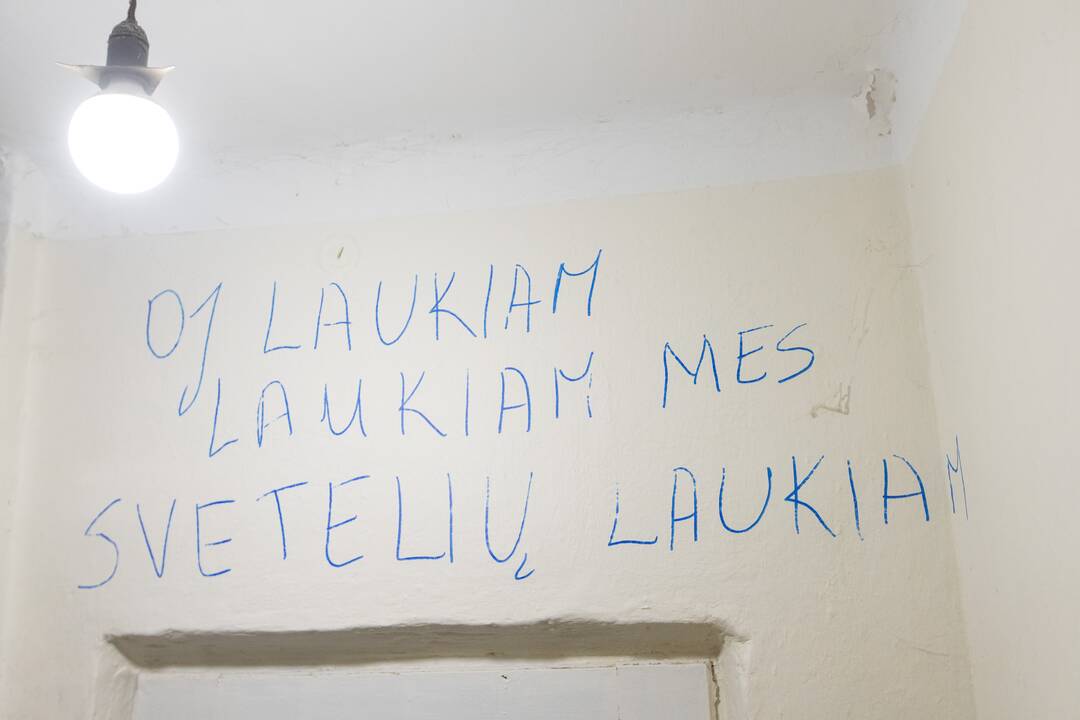 OJ LAUKIAM
LAUKIAM MES
SVETELIŲ LAUKIAM